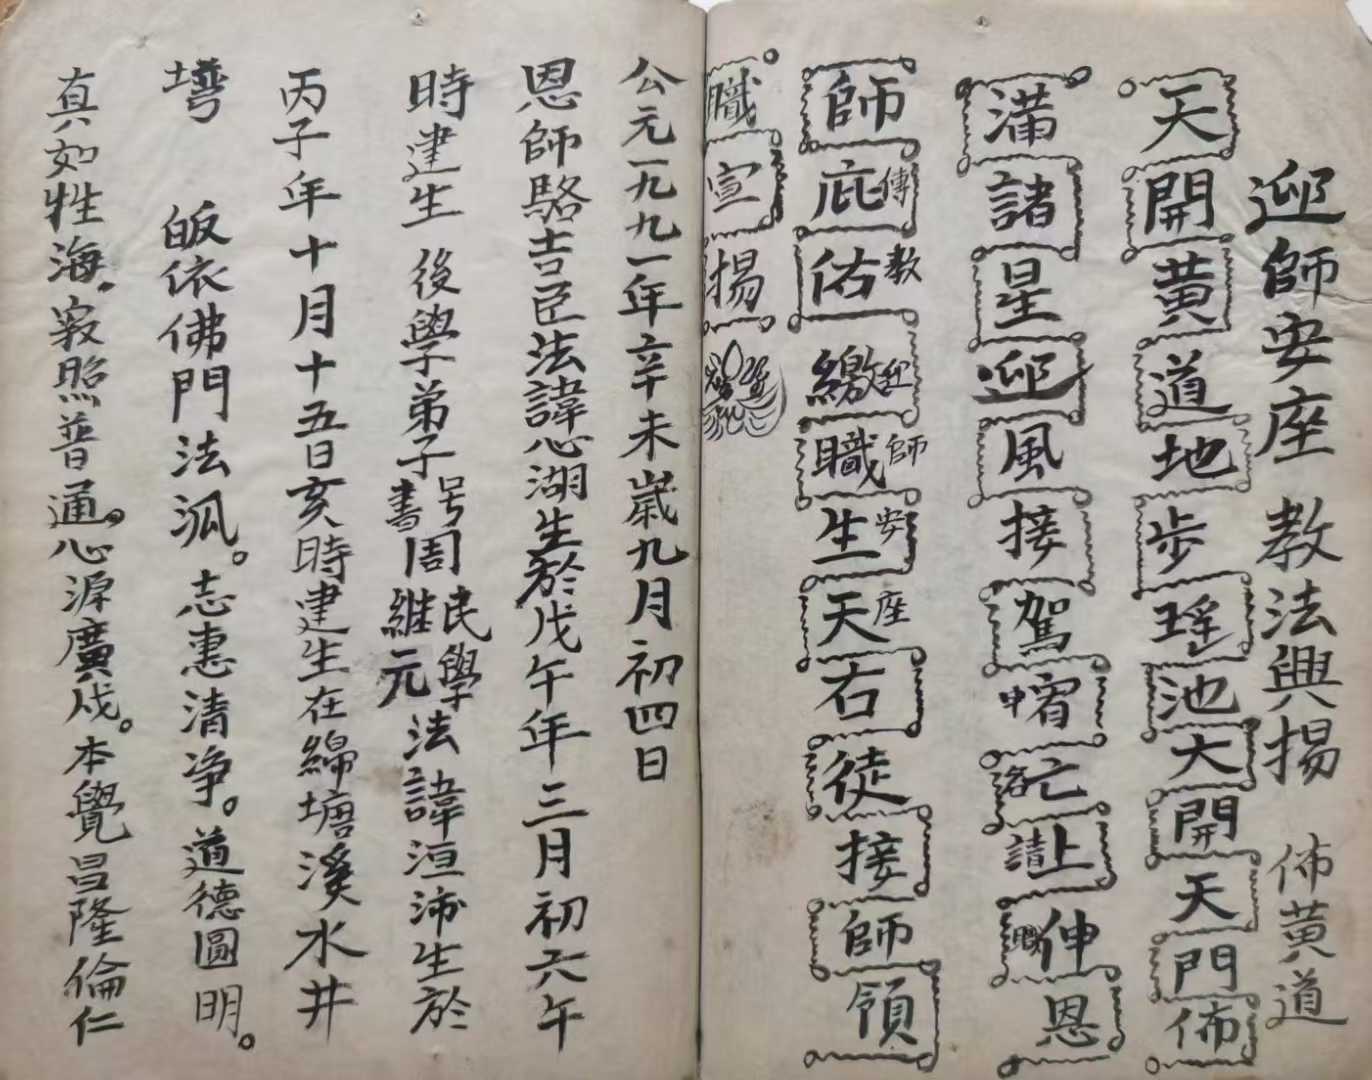 迎師安座 教法興揚 佈黃道
天開黃道地步瑤池大開天門佈
滿諸星迎風接駕上伸恩
師庇佑繳職生天右徒接師領
傳教迎師安座
職宣揚
公元一九九一年辛未歲九月初四日
恩師駱吉臣法諱心湖生於戊午年三月初六午
時建生 後學弟子書周維元法諱洹沛生於
号民學
丙子年十月十五日亥時建生在綿塘溪水井
塆 皈依佛門法派。志惠清净。道德圓明。
真如性海。寂照普通。心源廣成。本覺昌隆倫仁